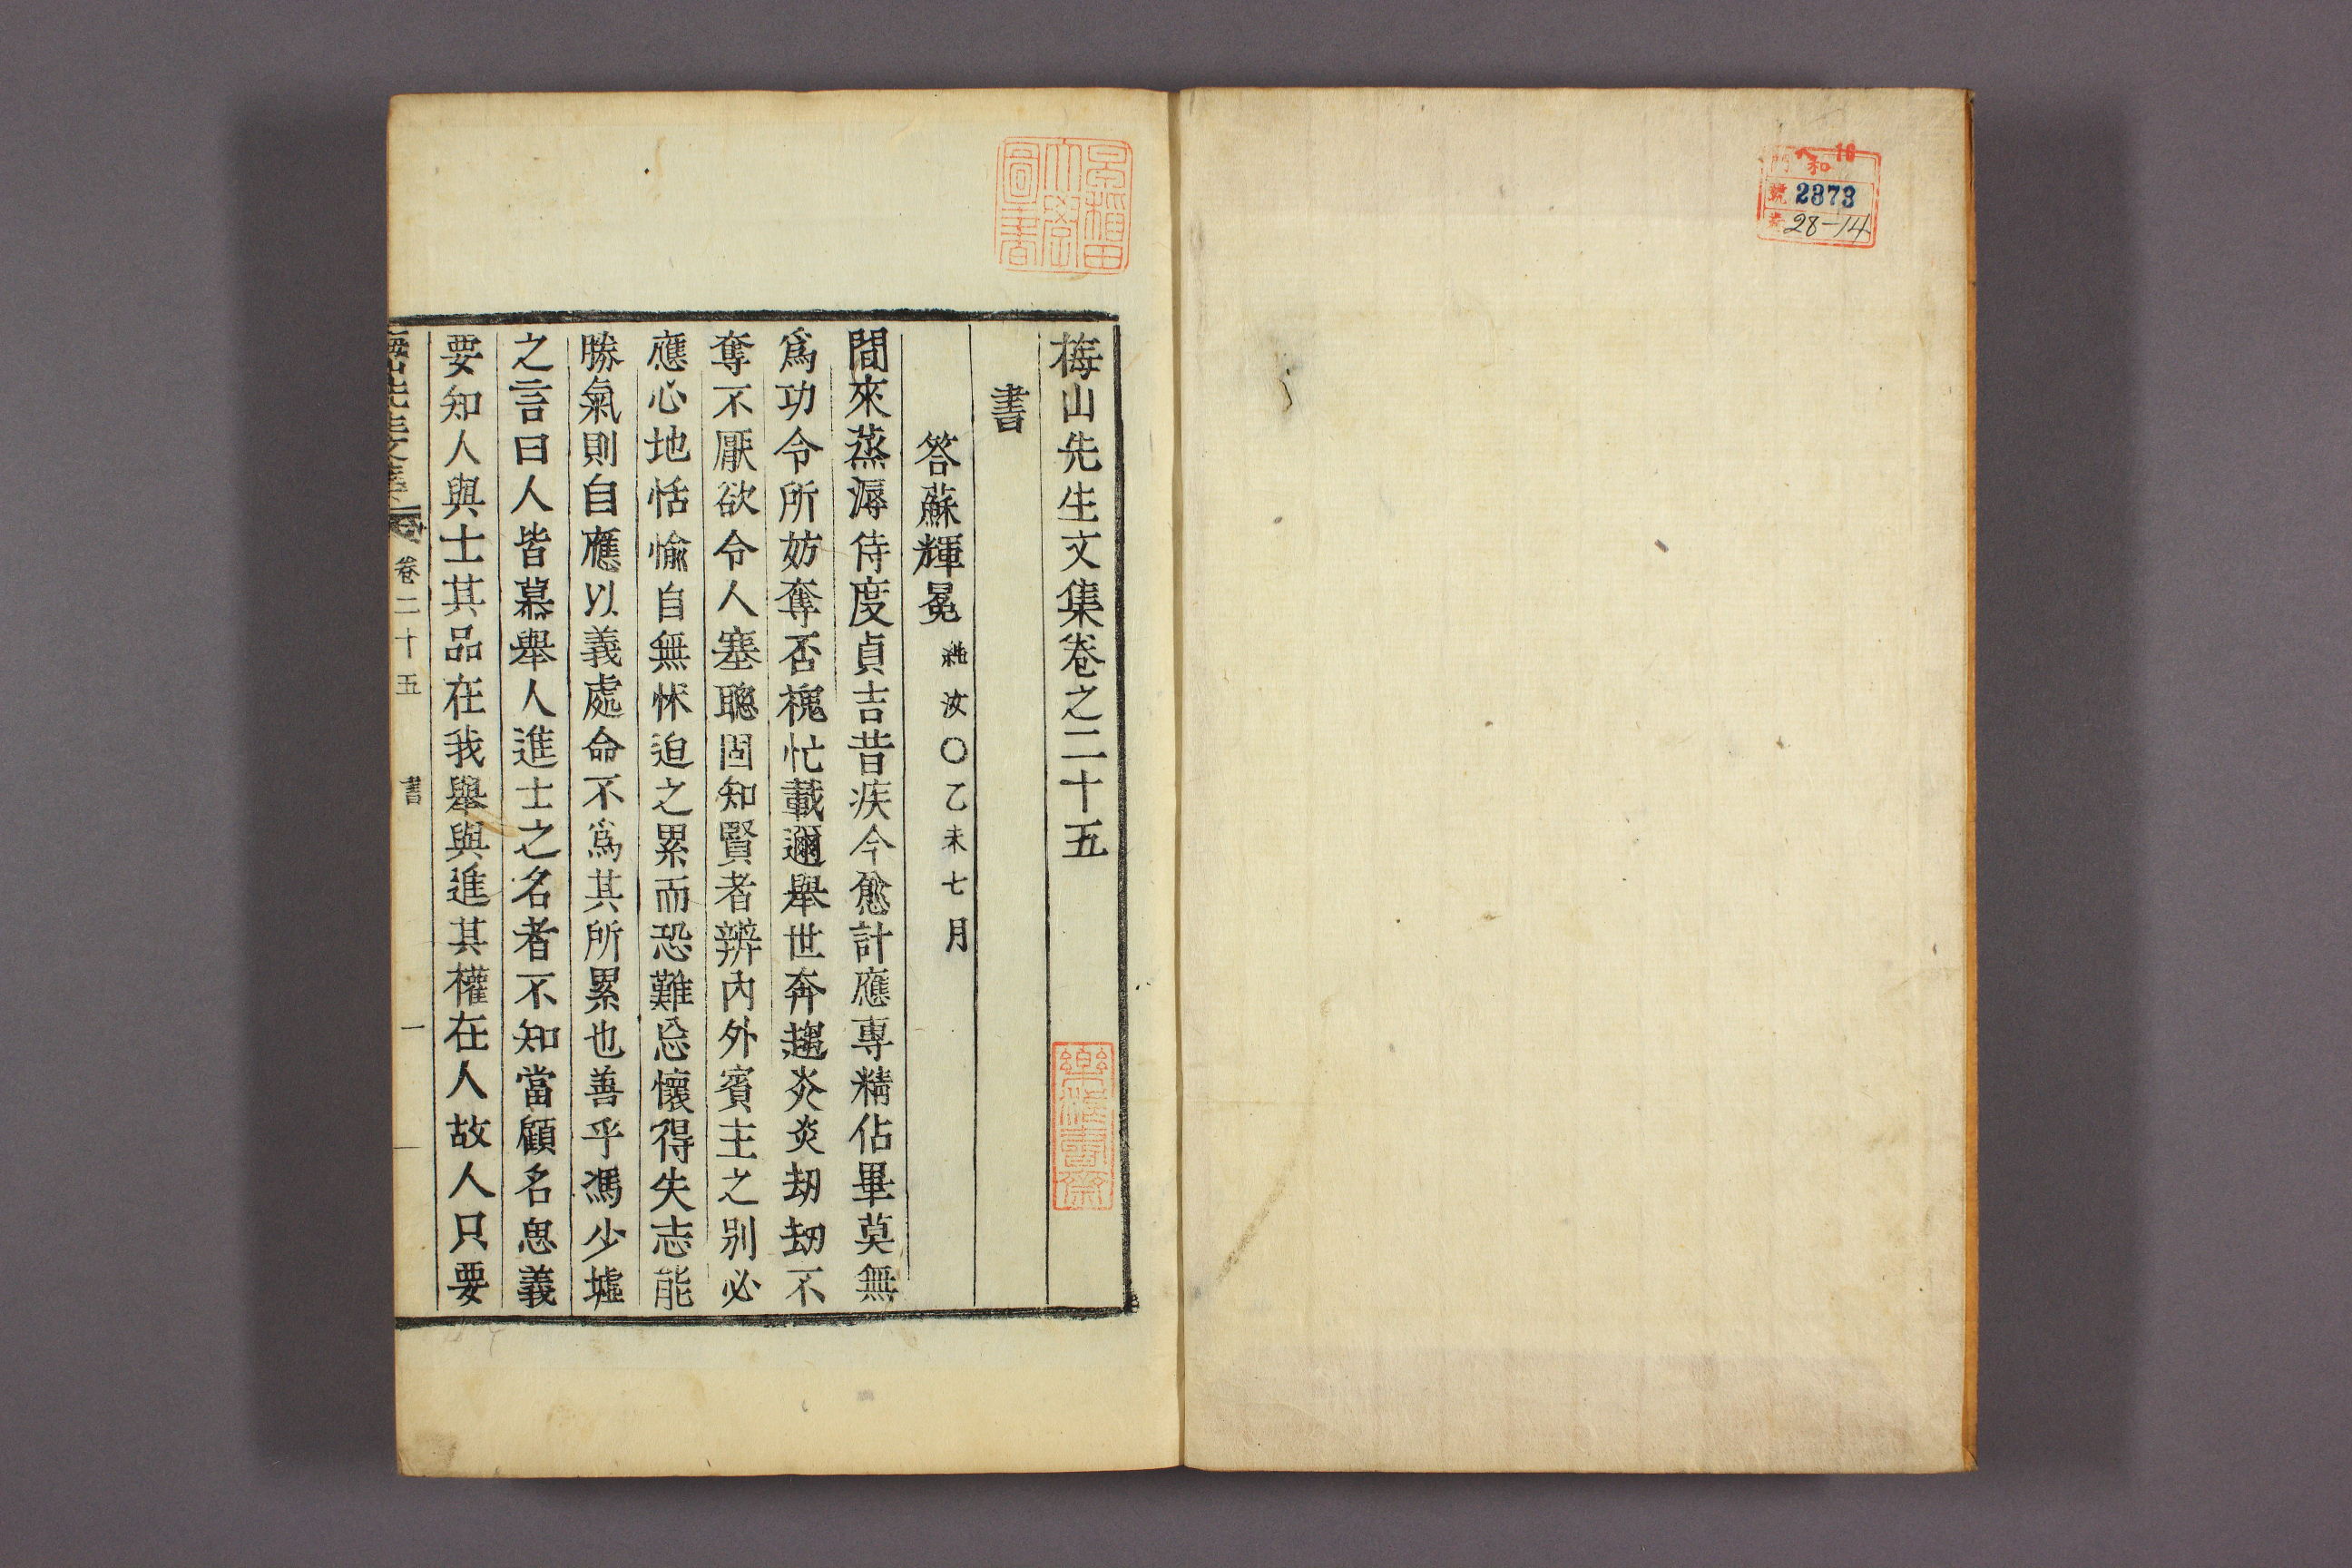 門 和 ヘ 16
號 2373
卷 28-14
早稻田
大學
圖書
梅山先生文集卷之二十五
書
答蘇輝冕 純汝○乙未七月
間來蒸溽侍度貞吉昔疾今愈計應專精佔畢莫無
爲功令所妨奪否槐忙載邇擧世奔趨炎炎劫劫不
奪不厭欲令人塞聰固知賢者辨內外賓主之別必
應心地恬愉自無怵迫之累而恐難忘懷得失志能
勝氣則自應以義處命不爲其所累也善乎馮少墟
之言曰人皆慕擧人進士之名者不知當顧名思義
要知人與士其品在我擧與進其權在人故人只要
梅山先生文集 卷二十五 書 一